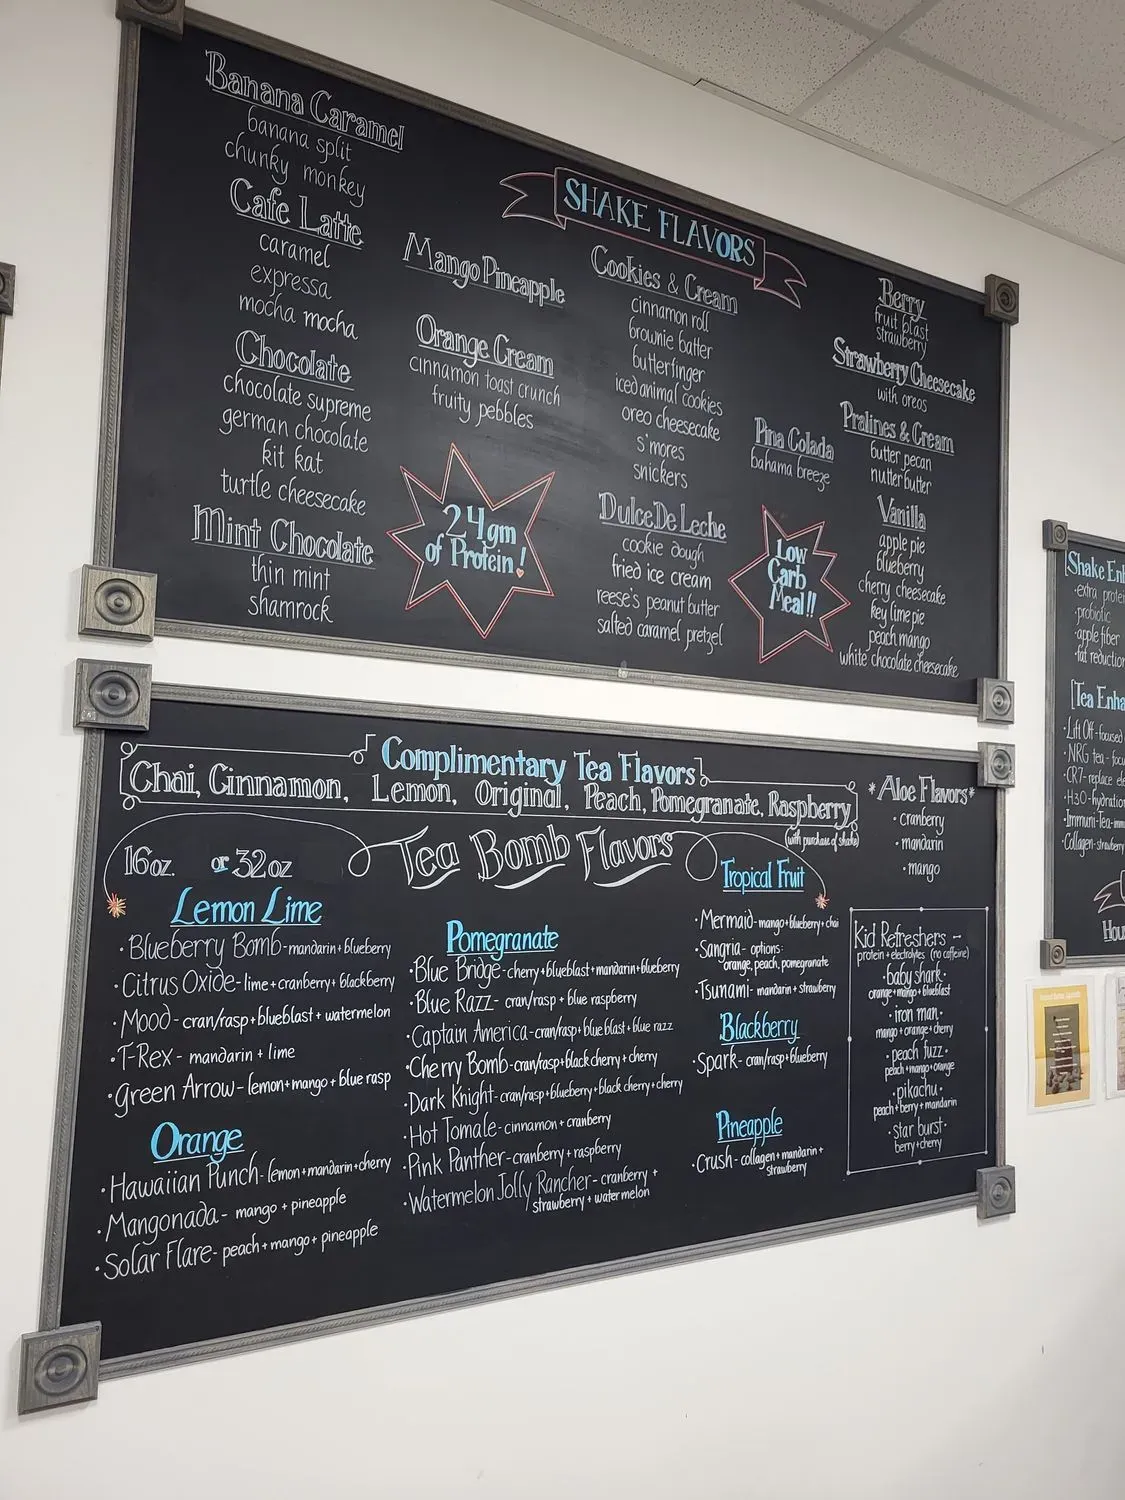 SHAKE FLAVORS
Banana Caramel
banana split
chunky monkey
Cafe Latte
caramel
expressa
mocha mocha
Chocolate
chocolate supreme
german chocolate
kit kat
turtle cheesecake
Mint Chocolate
thin mint
shamrock
Mango Pineapple
Orange Cream
cinnamon toast crunch
fruity pebbles
24gm
of Protein!
Cookies & Cream
cinnamon roll
brownie batter
butterfinger
iced animal cookies
oreo cheesecake
s'mores
snickers
Dulce De Leche
cookie dough
fried ice cream
reese's peanut butter
salted caramel pretzel
Pina Colada
bahama breeze
Low
Carb
Meal!!
Berry
fruit blast
strawberry
Strawberry Cheesecake
with oreos
Pralines & Cream
butter pecan
nutter butter
Vanilla
apple pie
blueberry
cherry cheesecake
key lime pie
peach mango
white chocolate cheesecake
Complimentary Tea Flavors
Chai, Cinnamon, Lemon, Original, Peach, Pomegranate, Raspberry
(with purchase of shake)
Tea Bomb Flavors
16oz. or 32oz
Lemon Lime
· Blueberry Bomb - mandarin + blueberry
· Citrus Oxide - lime + cranberry + blackberry
· Mood - cran/rasp + blueblast + watermelon
· T-Rex - mandarin + lime
· Green Arrow - lemon + mango + blue rasp
Orange
· Hawaiian Punch - lemon + mandarin + cherry
· Mangonada - mango + pineapple
· Solar Flare - peach + mango + pineapple
Pomegranate
· Blue Bridge - cherry + blueblast + mandarin + blueberry
· Blue Razz - cran/rasp + blue raspberry
· Captain America - cran/rasp + blue blast + blue razz
· Cherry Bomb - cran/rasp + black cherry + cherry
· Dark Knight - cran/rasp + blueberry + black cherry + cherry
· Hot Tomale - cinnamon + cranberry
· Pink Panther - cranberry + raspberry
· Watermelon Jolly Rancher - cranberry +
strawberry + watermelon
Tropical Fruit
· Mermaid - mango + blueberry + chai
· Sangria - options:
orange, peach, pomegranate
· Tsunami - mandarin + strawberry
Blackberry
· Spark - cran/rasp + blueberry
Pineapple
· Crush - collagen + mandarin +
strawberry
*Aloe Flavors*
· cranberry
· mandarin
· mango
Kid Refreshers -
protein + electrolytes (no caffeine)
· baby shark ·
orange + mango + blueblast
· iron man ·
mango + orange + cherry
· peach fuzz ·
peach + mango + orange
· pikachu ·
peach + berry + mandarin
· star burst ·
berry + cherry
Shake Enh
· extra protei
· probiotic
· apple fiber
· fat reduction
Tea Enha
· Lift Off - focused
· NRG tea - focu
· CR7 - replace ele
· H30 - hydration
· Immuni-Tea - imm
· Collagen - strawberry
Hou